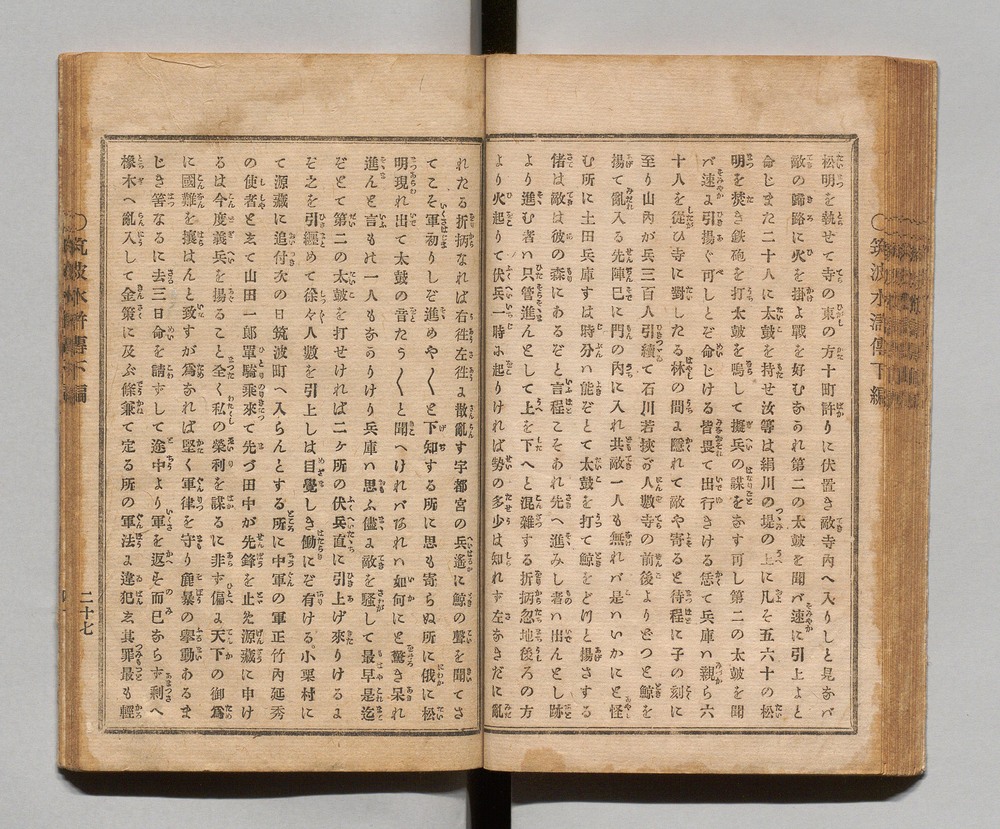 筑波水滸傳下編
松明を執せて寺の東の方十町許りに伏置き敵寺内へ入りしと見なバ
敵の歸路に火を掛よ戰を好むなられ第二の太鼓を聞バ速に引上よと
命じまた二十人に太鼓を持せ汝等は絹川の堤の上に凡そ五六十の松
明を焚き鉄砲を打太鼓を鳴して擬兵の謀をなす可し第二の太鼓を聞
バ速よ引揚ぐ可しとぞ命じける皆畏て出行きける恁て兵庫ハ親ら六
十人を從ひ寺に對したる林の間よ隱れて敵や寄ると待程に子の刻に
至り山内が兵三百人引續て石川若挾が人數寺の前後よりどつと鯨を
揚て亂入る先陣已に門の内に入れ共敵一人も無れバ是ハいかにと怪
む所に土田兵庫すは時分ハ能ぞとて太鼓を打て鯨をどつと揚さする
偖は敵は彼の森にあるぞと言程こそあれ先へ進みし者ハ出んとし跡
より進む者ハ只管進んとして上を下へと混雜する折柄忽地後ろの方
より火起りて伏兵一時よ起りければ勢の多少は知れす左なきだに亂
れたる折柄なれば右往左往よ散亂す宇都宮の兵遙に鯨の聲を聞てさ
てこそ軍初りしぞ進めや〳〵と下知する所に思も寄らぬ所に俄に松
明現れ出て太鼓の音たう〳〵と聞へけれバこれハ如何にと驚き呆れ
進んと言もの一人もなかりけり兵庫ハ思ふ儘よ敵を騷して最早是迄
ぞとて第二の太鼓を打せければ二ヶ所の伏兵直に引上げ來りけるよ
ぞ之を引纒めて徐々人數を引上しは目覺しき働にぞ有ける。小栗村に
て源藏に追付次の日筑波町へ入らんとする所に中軍の軍正竹内延秀
の使者として山田一郎單騎乘來て先づ田中が先鋒を止め源藏に申け
るは今度義兵を揚ること全く私の榮利を謀るに非す偏よ天下の御爲
に國難を攘はんと致すが爲なれば堅く軍律を守り麁暴の擧動あるま
じき筈なるに去三日命を請すして途中より軍を返そ而已ならす剩へ
橡木へ亂入して金策に及ぶ條兼て定る所の軍法よ違犯ゑ其罪最も輕
筑波水滸傳下編
二十七